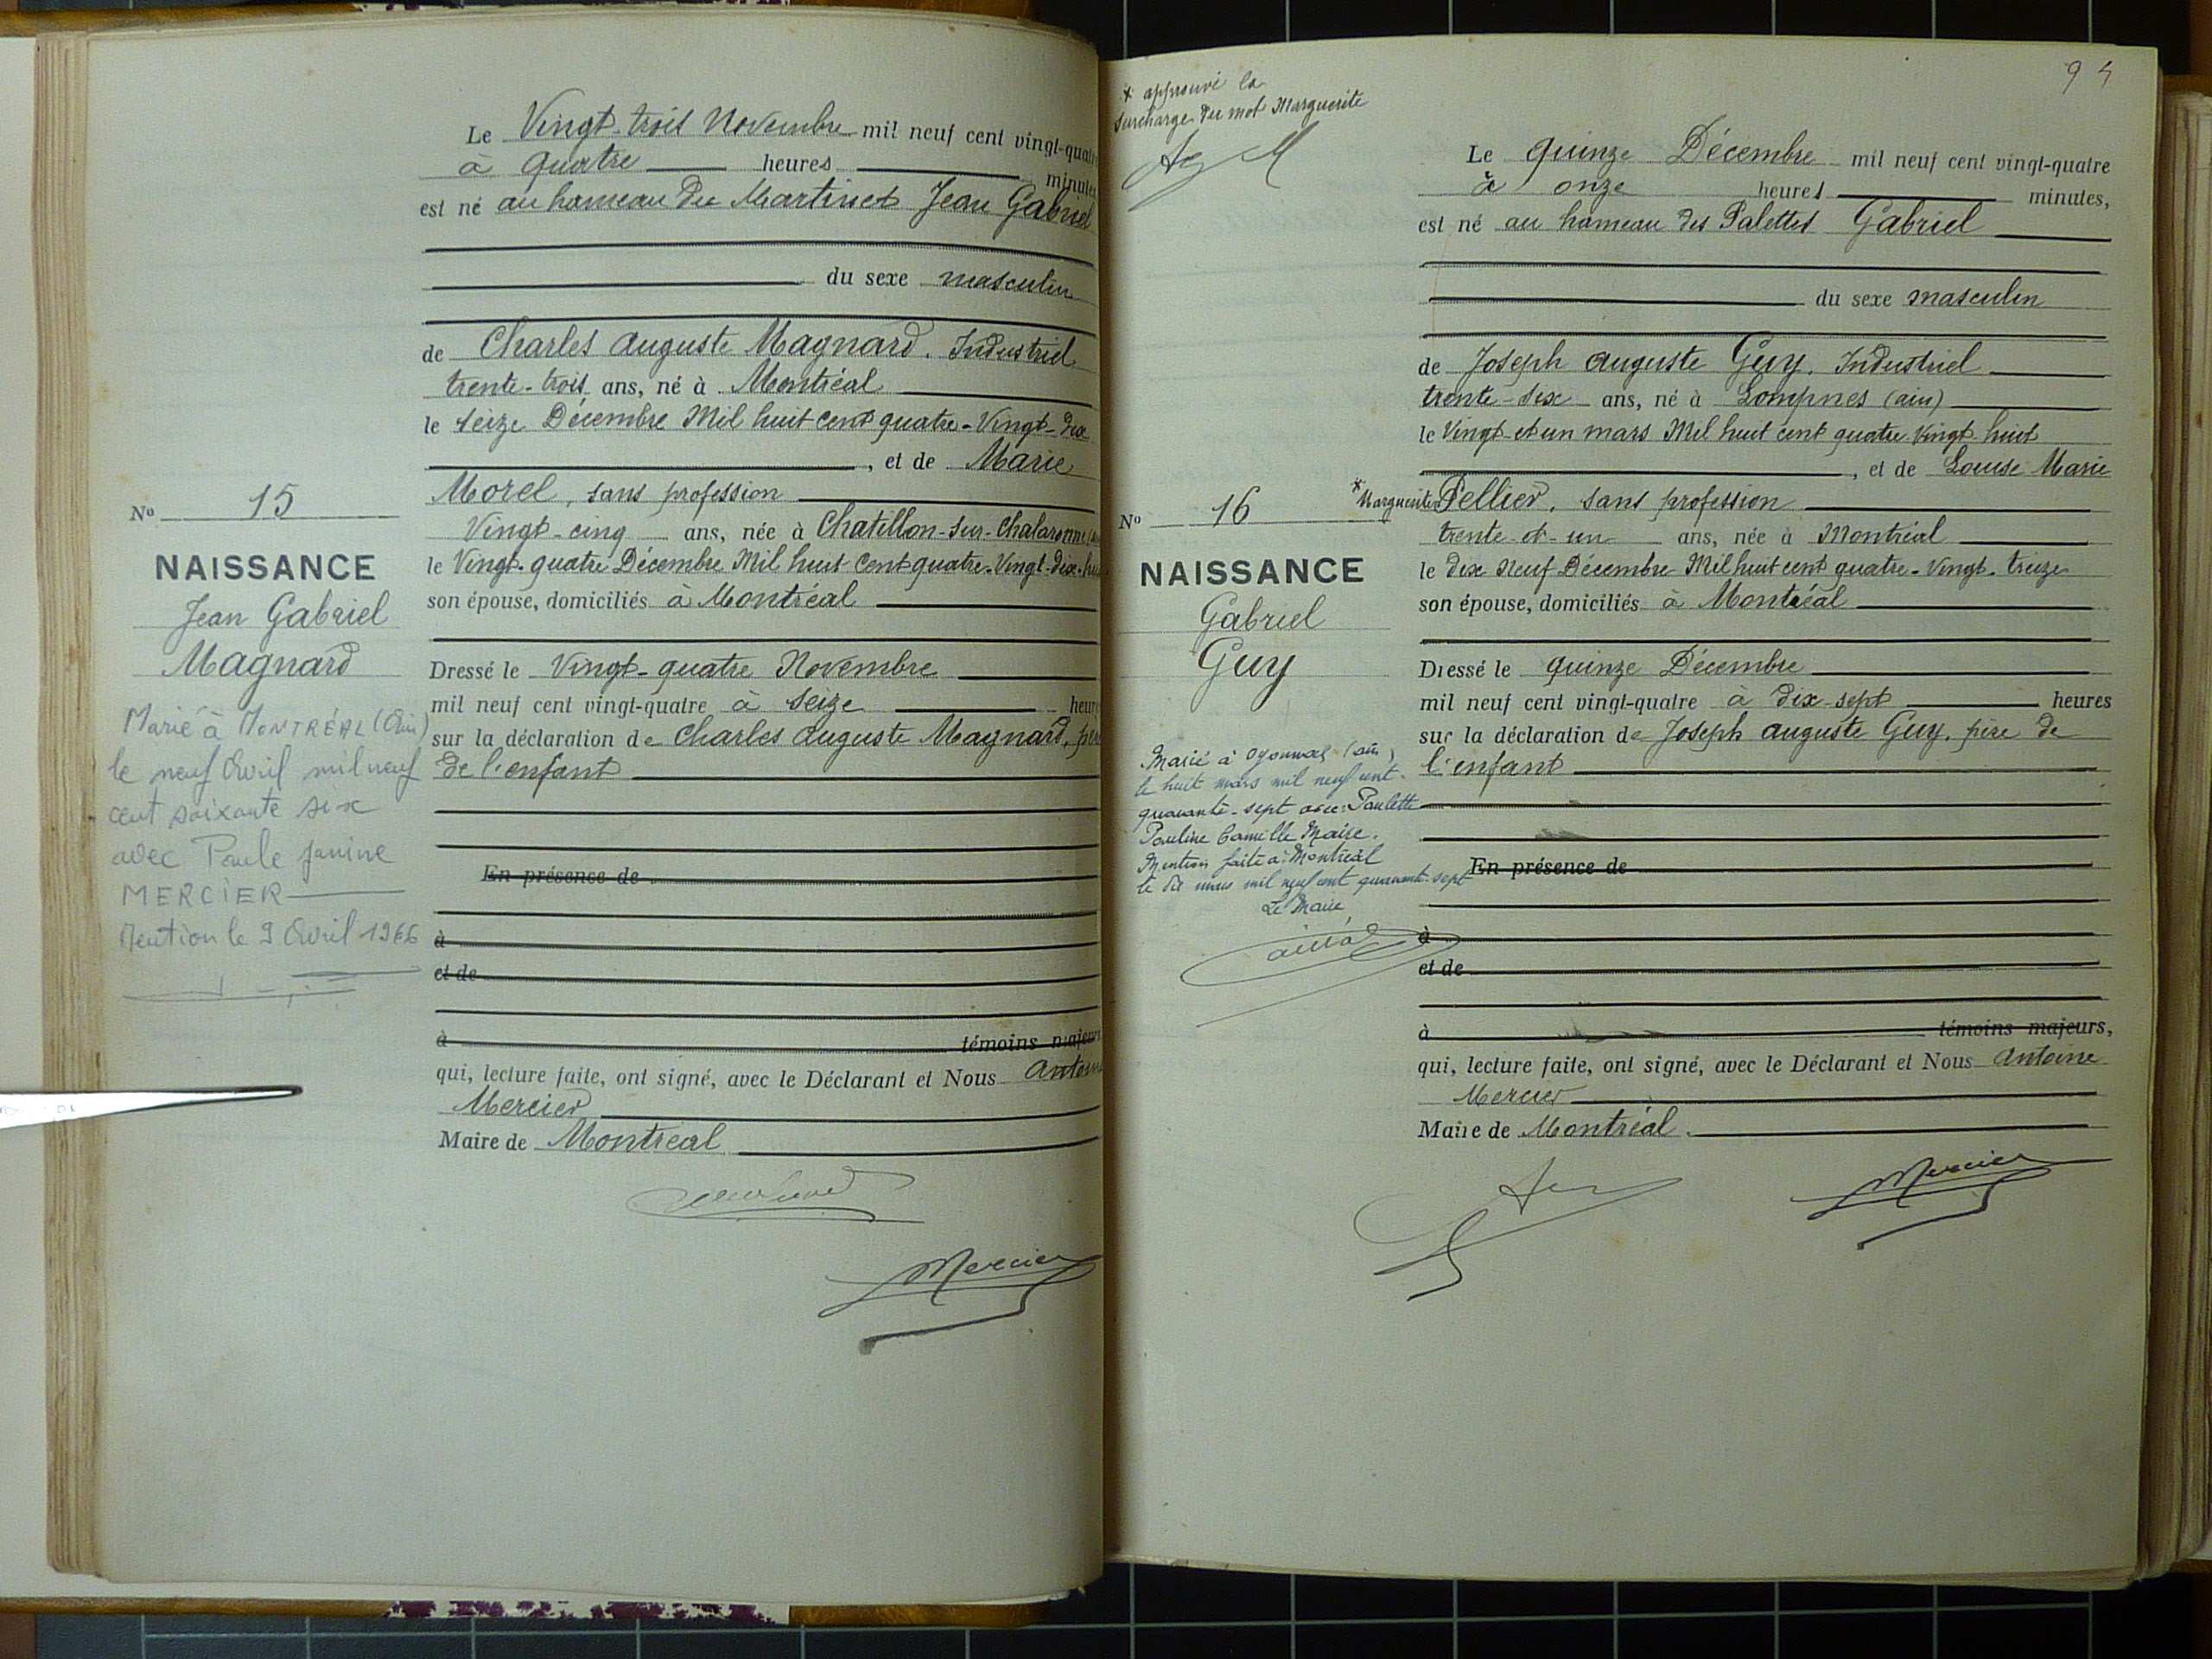 Le Vingt-trois Novembre mil neuf cent vingt-quatre
à quatre heures minutes
est né au hameau du Martinet Jean Gabriel
du sexe masculin
de Charles Auguste Magnard. Industriel
trente-trois ans, né à Montréal
le seize Décembre Mil huit cent quatre-Vingt-dix
, et de Marie
Morel, sans profession
Vingt-cinq ans, née à Chatillon-sur-Chalaronne
le Vingt-quatre Décembre Mil huit Cent quatre-Vingt-dix-hu
son épouse, domiciliés à Montréal
Dressé le Vingt-quatre Novembre
mil neuf cent vingt-quatre à seize heures
sur la déclaration de Charles Auguste Magnard, père
de l'enfant
En présence de
à
et de
à témoins majeurs
qui, lecture faite, ont signé, avec le Déclarant et Nous Antoine
Mercier
Maire de Montréal
Mercier
No 15
NAISSANCE
Jean Gabriel
Magnard
Marié à MONTRÉAL (Ain)
le neuf Avril mil neuf
cent soixante six
avec Paule Janine
MERCIER
Mention le 9 Avril 1966
94
* approuvé la
surcharge du mot Marguerite
Le quinze Décembre mil neuf cent vingt-quatre
à onze heures minutes,
est né au hameau des Palettes Gabriel
du sexe masculin
de Joseph Auguste Guy. Industriel
trente-six ans, né à Lompnes (ain)
le Vingt-et un mars Mil huit cent quatre Vingt-huit
, et de Louise Marie
* Marguerite Pellier, sans profession
trente-et-un ans, née à Montréal
le dix neuf Décembre Mil huit cent quatre-Vingt-treize
son épouse, domiciliés à Montréal
Dressé le quinze Décembre
mil neuf cent vingt-quatre à dix-sept heures
sur la déclaration de Joseph Auguste Guy, père de
l'enfant
En présence de
à
et de
à témoins majeurs,
qui, lecture faite, ont signé, avec le Déclarant et Nous Antoine
Mercier
Maire de Montréal.
Mercier
No 16
NAISSANCE
Gabriel
Guy
Marié à Oyonnax (ain)
le huit mars mil neuf cent
quarante-sept avec Paulette
Pauline Camille Maire.
Mention faite à Montréal
le dix mars mil neuf cent quarante-sept
Le Maire